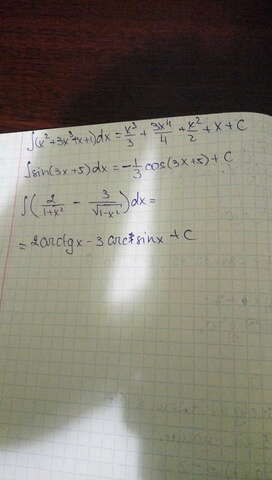 ∫(x²+3x³+x+1)dx = x³/3 + 3x⁴/4 + x²/2 + x + C
∫sin(3x+5)dx = -1/3 cos(3x+5) + C
∫(2/(1+x²) - 3/√(1-x²))dx =
= 2arctgx - 3 arcsinx + C